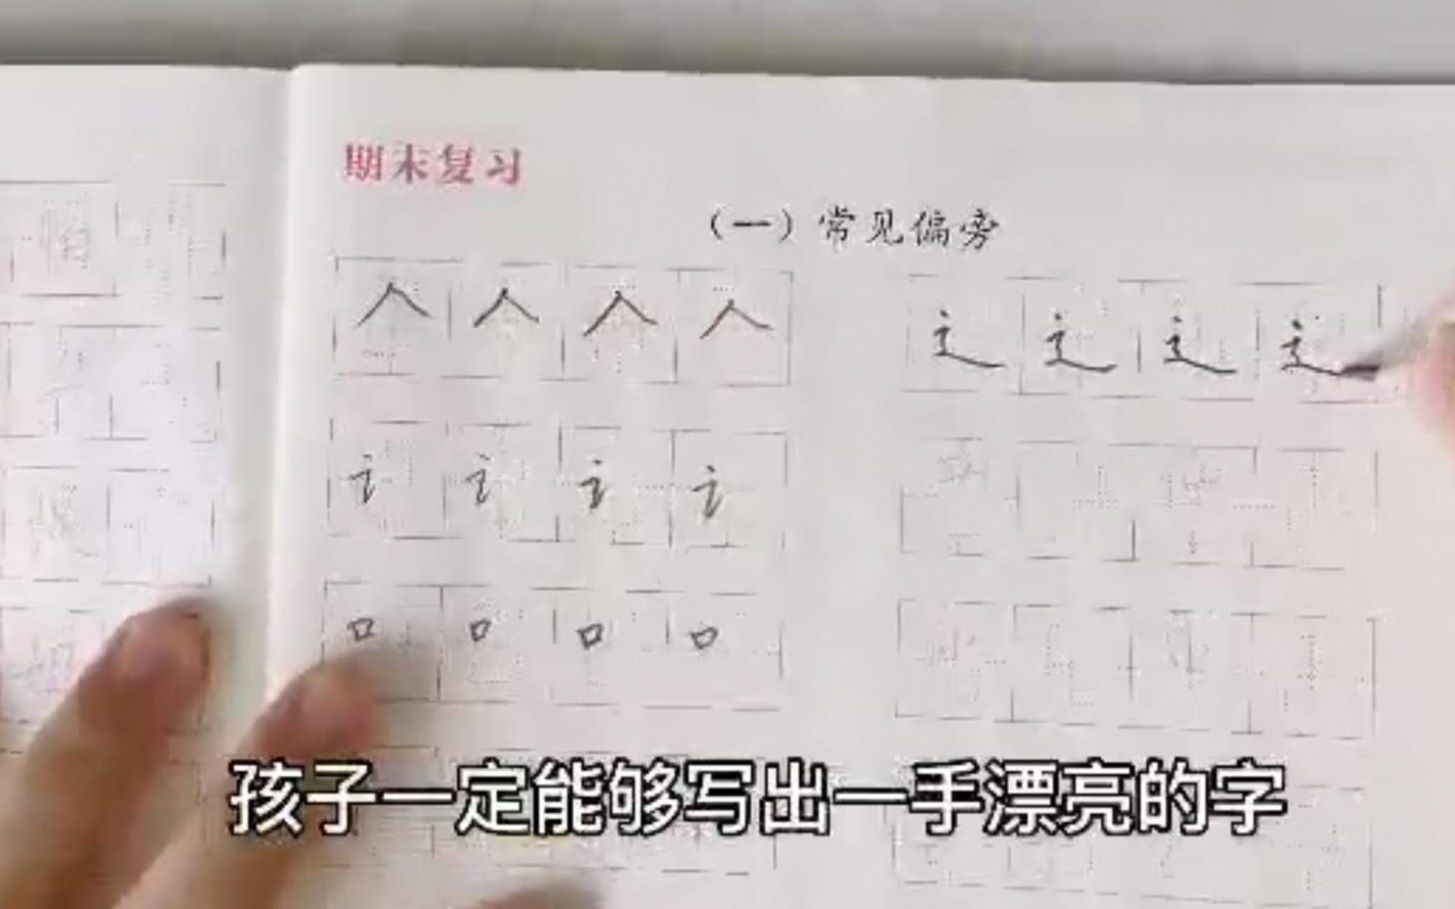 期末复习
（一）常见偏旁
人 人 人 人
辶 辶 辶 辶
讠 讠 讠 讠
口 口 口 口
孩子一定能够写出一手漂亮的字